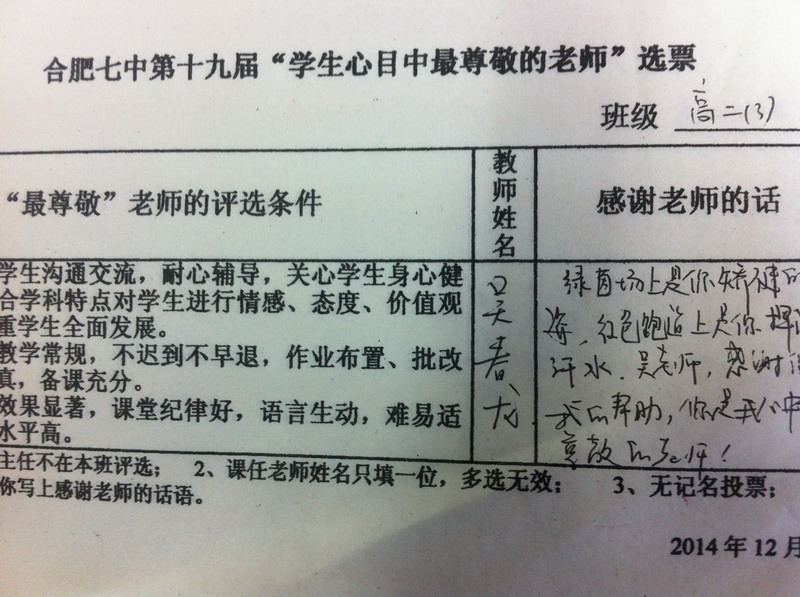 合肥七中第十九届“学生心目中最尊敬的老师”选票
班级 高二(3)
“最尊敬”老师的评选条件
教师姓名
感谢老师的话
学生沟通交流，耐心辅导，关心学生身心健
合学科特点对学生进行情感、态度、价值观
重学生全面发展。
教学常规，不迟到不早退，作业布置、批改
真，备课充分。
效果显著，课堂纪律好，语言生动，难易适
水平高。
吴春龙
绿茵场上是你矫健的
姿，红色跑道上是你挥
汗水，吴老师，感谢
我的帮助，你是我心中
尊敬的老师！
主任不在本班评选； 2、课任老师姓名只填一位，多选无效； 3、无记名投票；
你写上感谢老师的话语。
2014 年 12 月